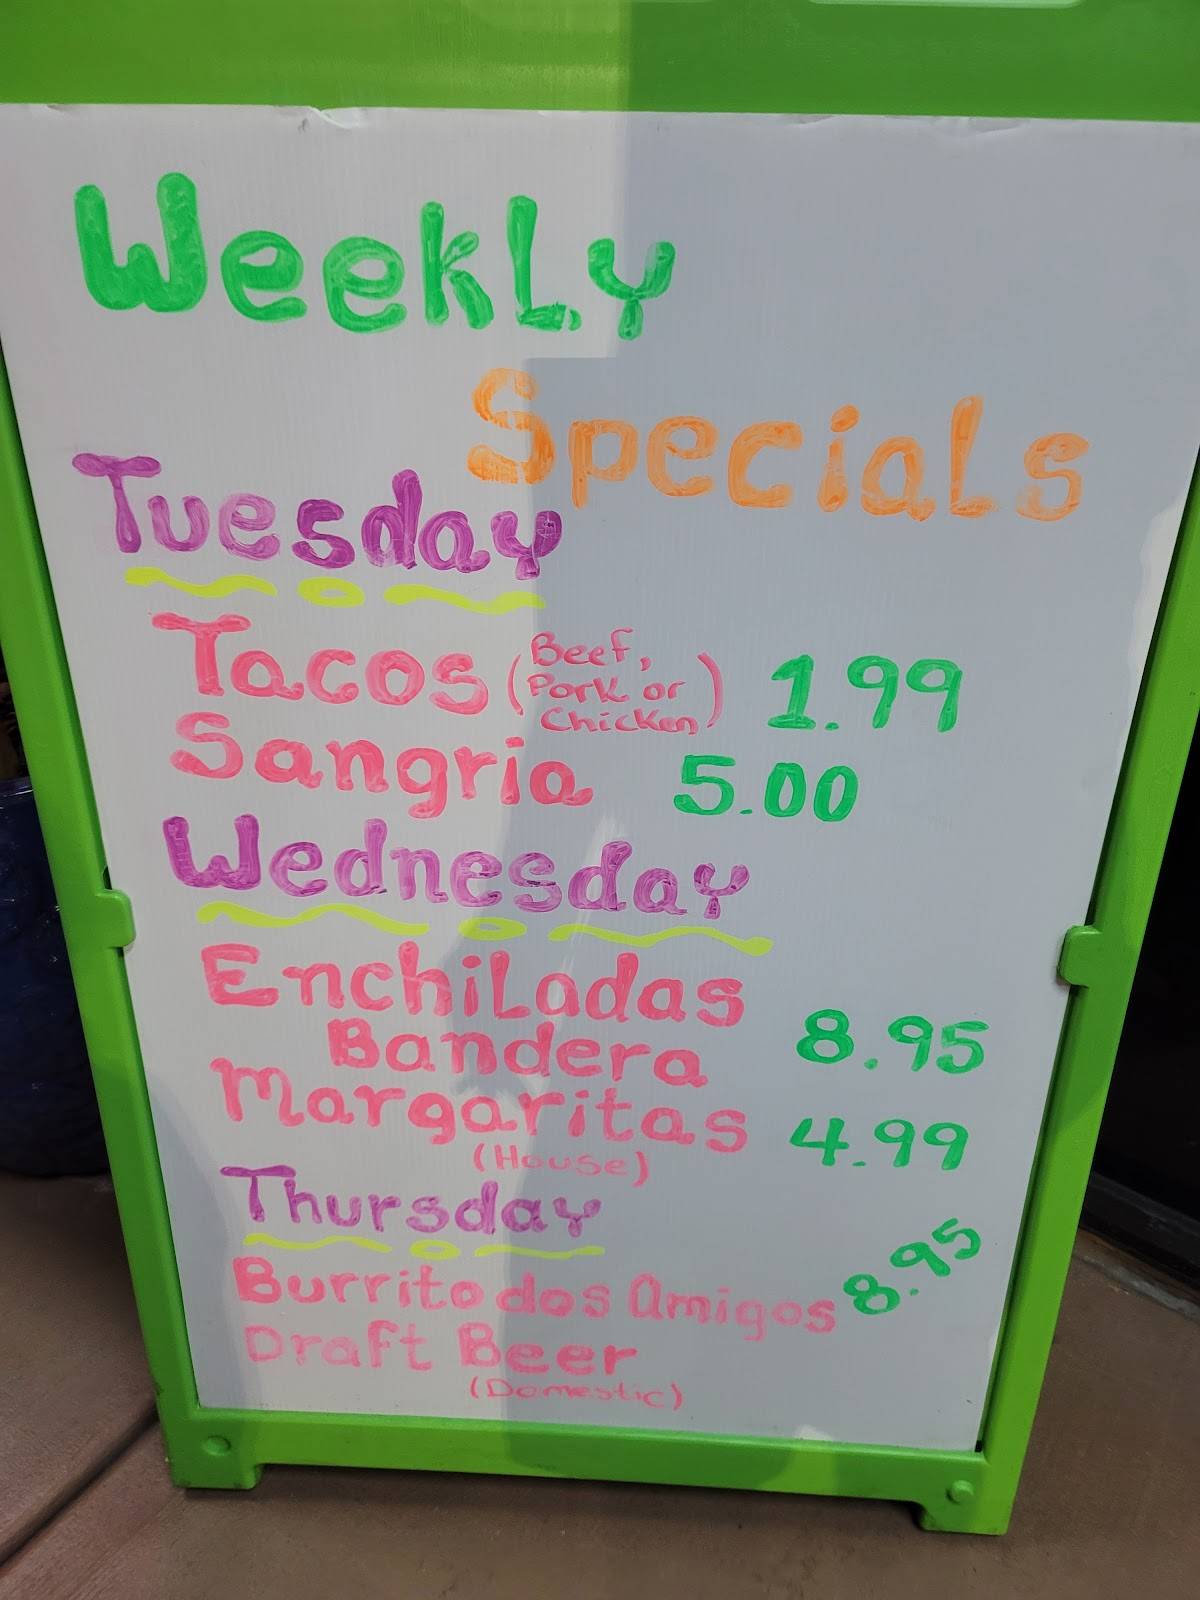 Weekly
Specials
Tuesday
Tacos (Beef, Pork or Chicken) 1.99
Sangria 5.00
Wednesday
Enchiladas
Bandera 8.95
Margaritas 4.99
(House)
Thursday
Burrito dos Amigos 8.95
Draft Beer
(Domestic)